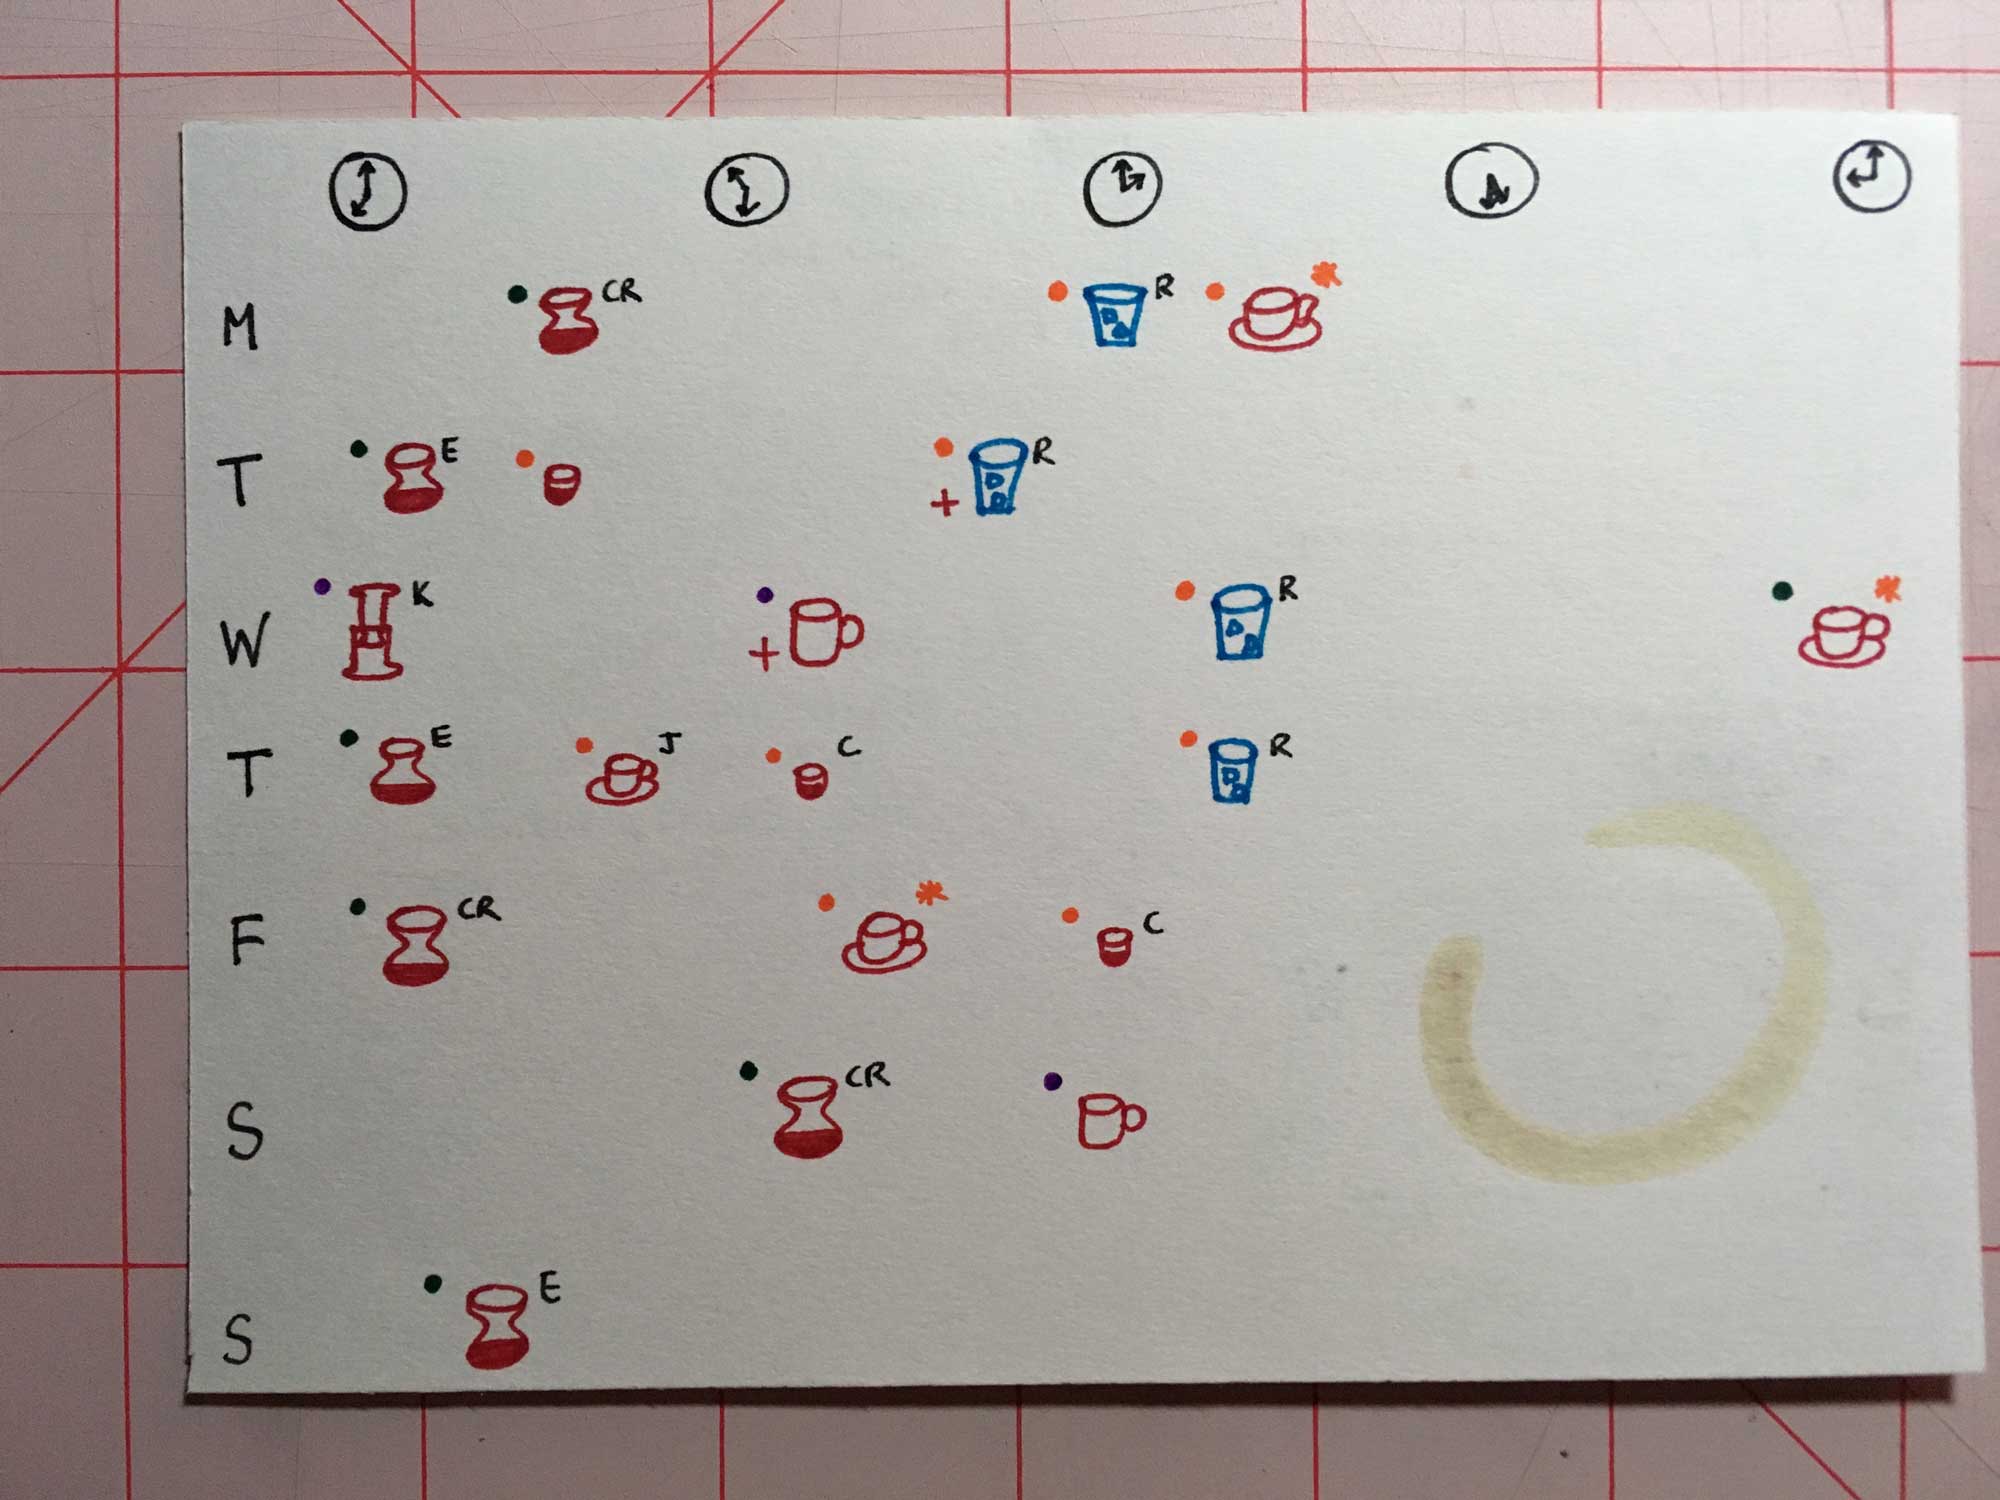 M CR R
T E + R
W K + R
T E J C R
F CR C
S CR
S E